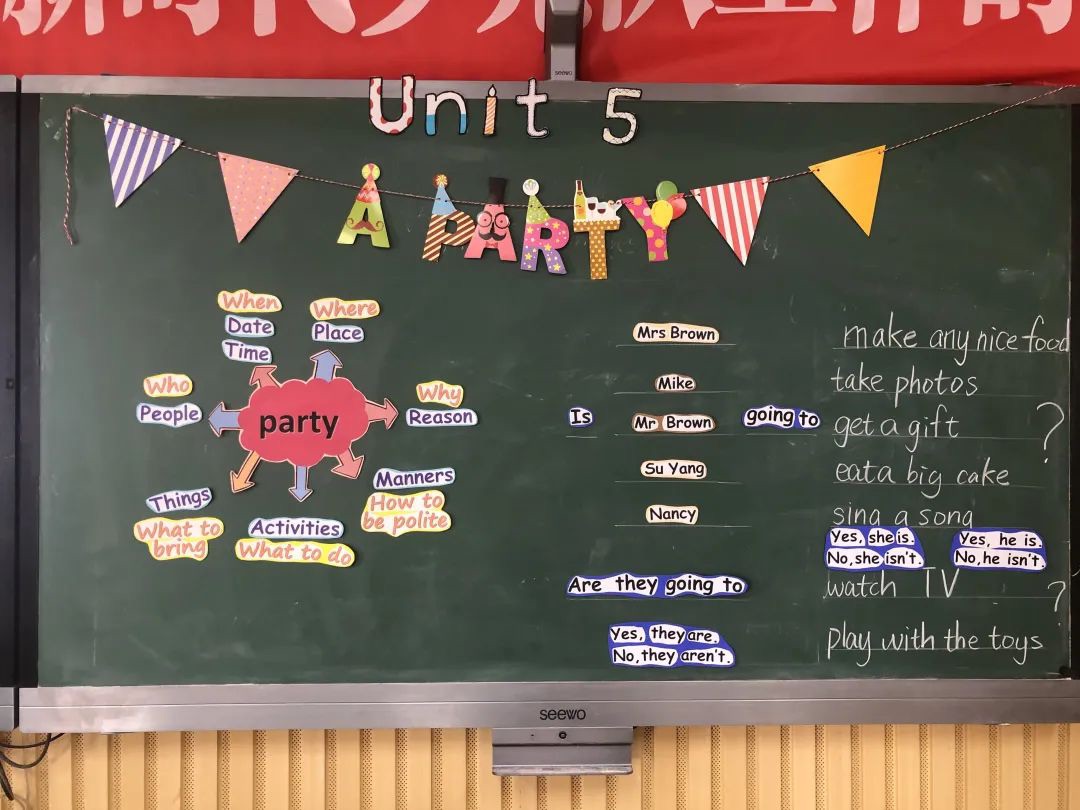 新时代少先队工作的
seewo
Unit 5
A PARTY
When
Date
Time
Where
Place
Who
People
party
Why
Reason
Things
What to
bring
Activities
What to do
Manners
How to
be polite
Mrs Brown
Mike
Is Mr Brown going to
Su Yang
Nancy
make any nice food
take photos
get a gift ?
eat a big cake
sing a song
Yes, she is.
No, she isn't.
Yes, he is.
No, he isn't.
Are they going to
watch TV ?
play with the toys
Yes, they are.
No, they aren't.
seewo